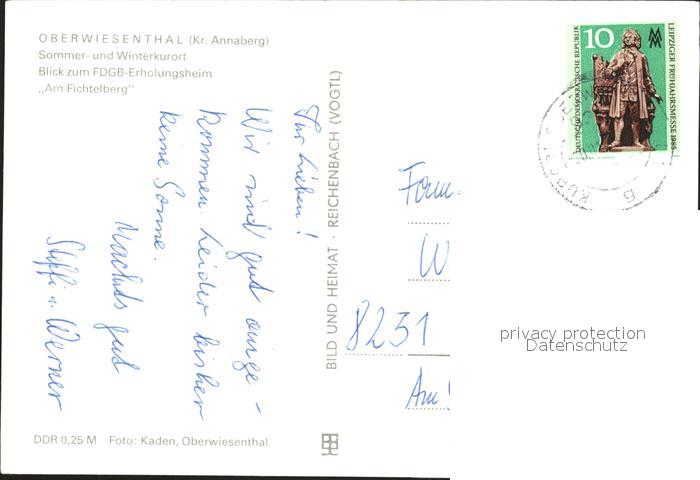 OBERWIESENTHAL (Kr. Annaberg)
Sommer- und Winterkurort
Blick zum FDGB-Erholungsheim
„Am Fichtelberg"
Ihr Lieben!
Wir sind gut ange-
kommen. Leider bisher
keine Sonne.
Machts gut
Steffi u. Werner
BILD UND HEIMAT · REICHENBACH (VOGTL)
DDR 0,25 M Foto: Kaden, Oberwiesenthal
10
DEUTSCHE DEMOKRATISCHE REPUBLIK
LEIPZIGER FRÜHJAHRSMESSE 1985
Fam.
W
8231
Am
privacy protection
Datenschutz